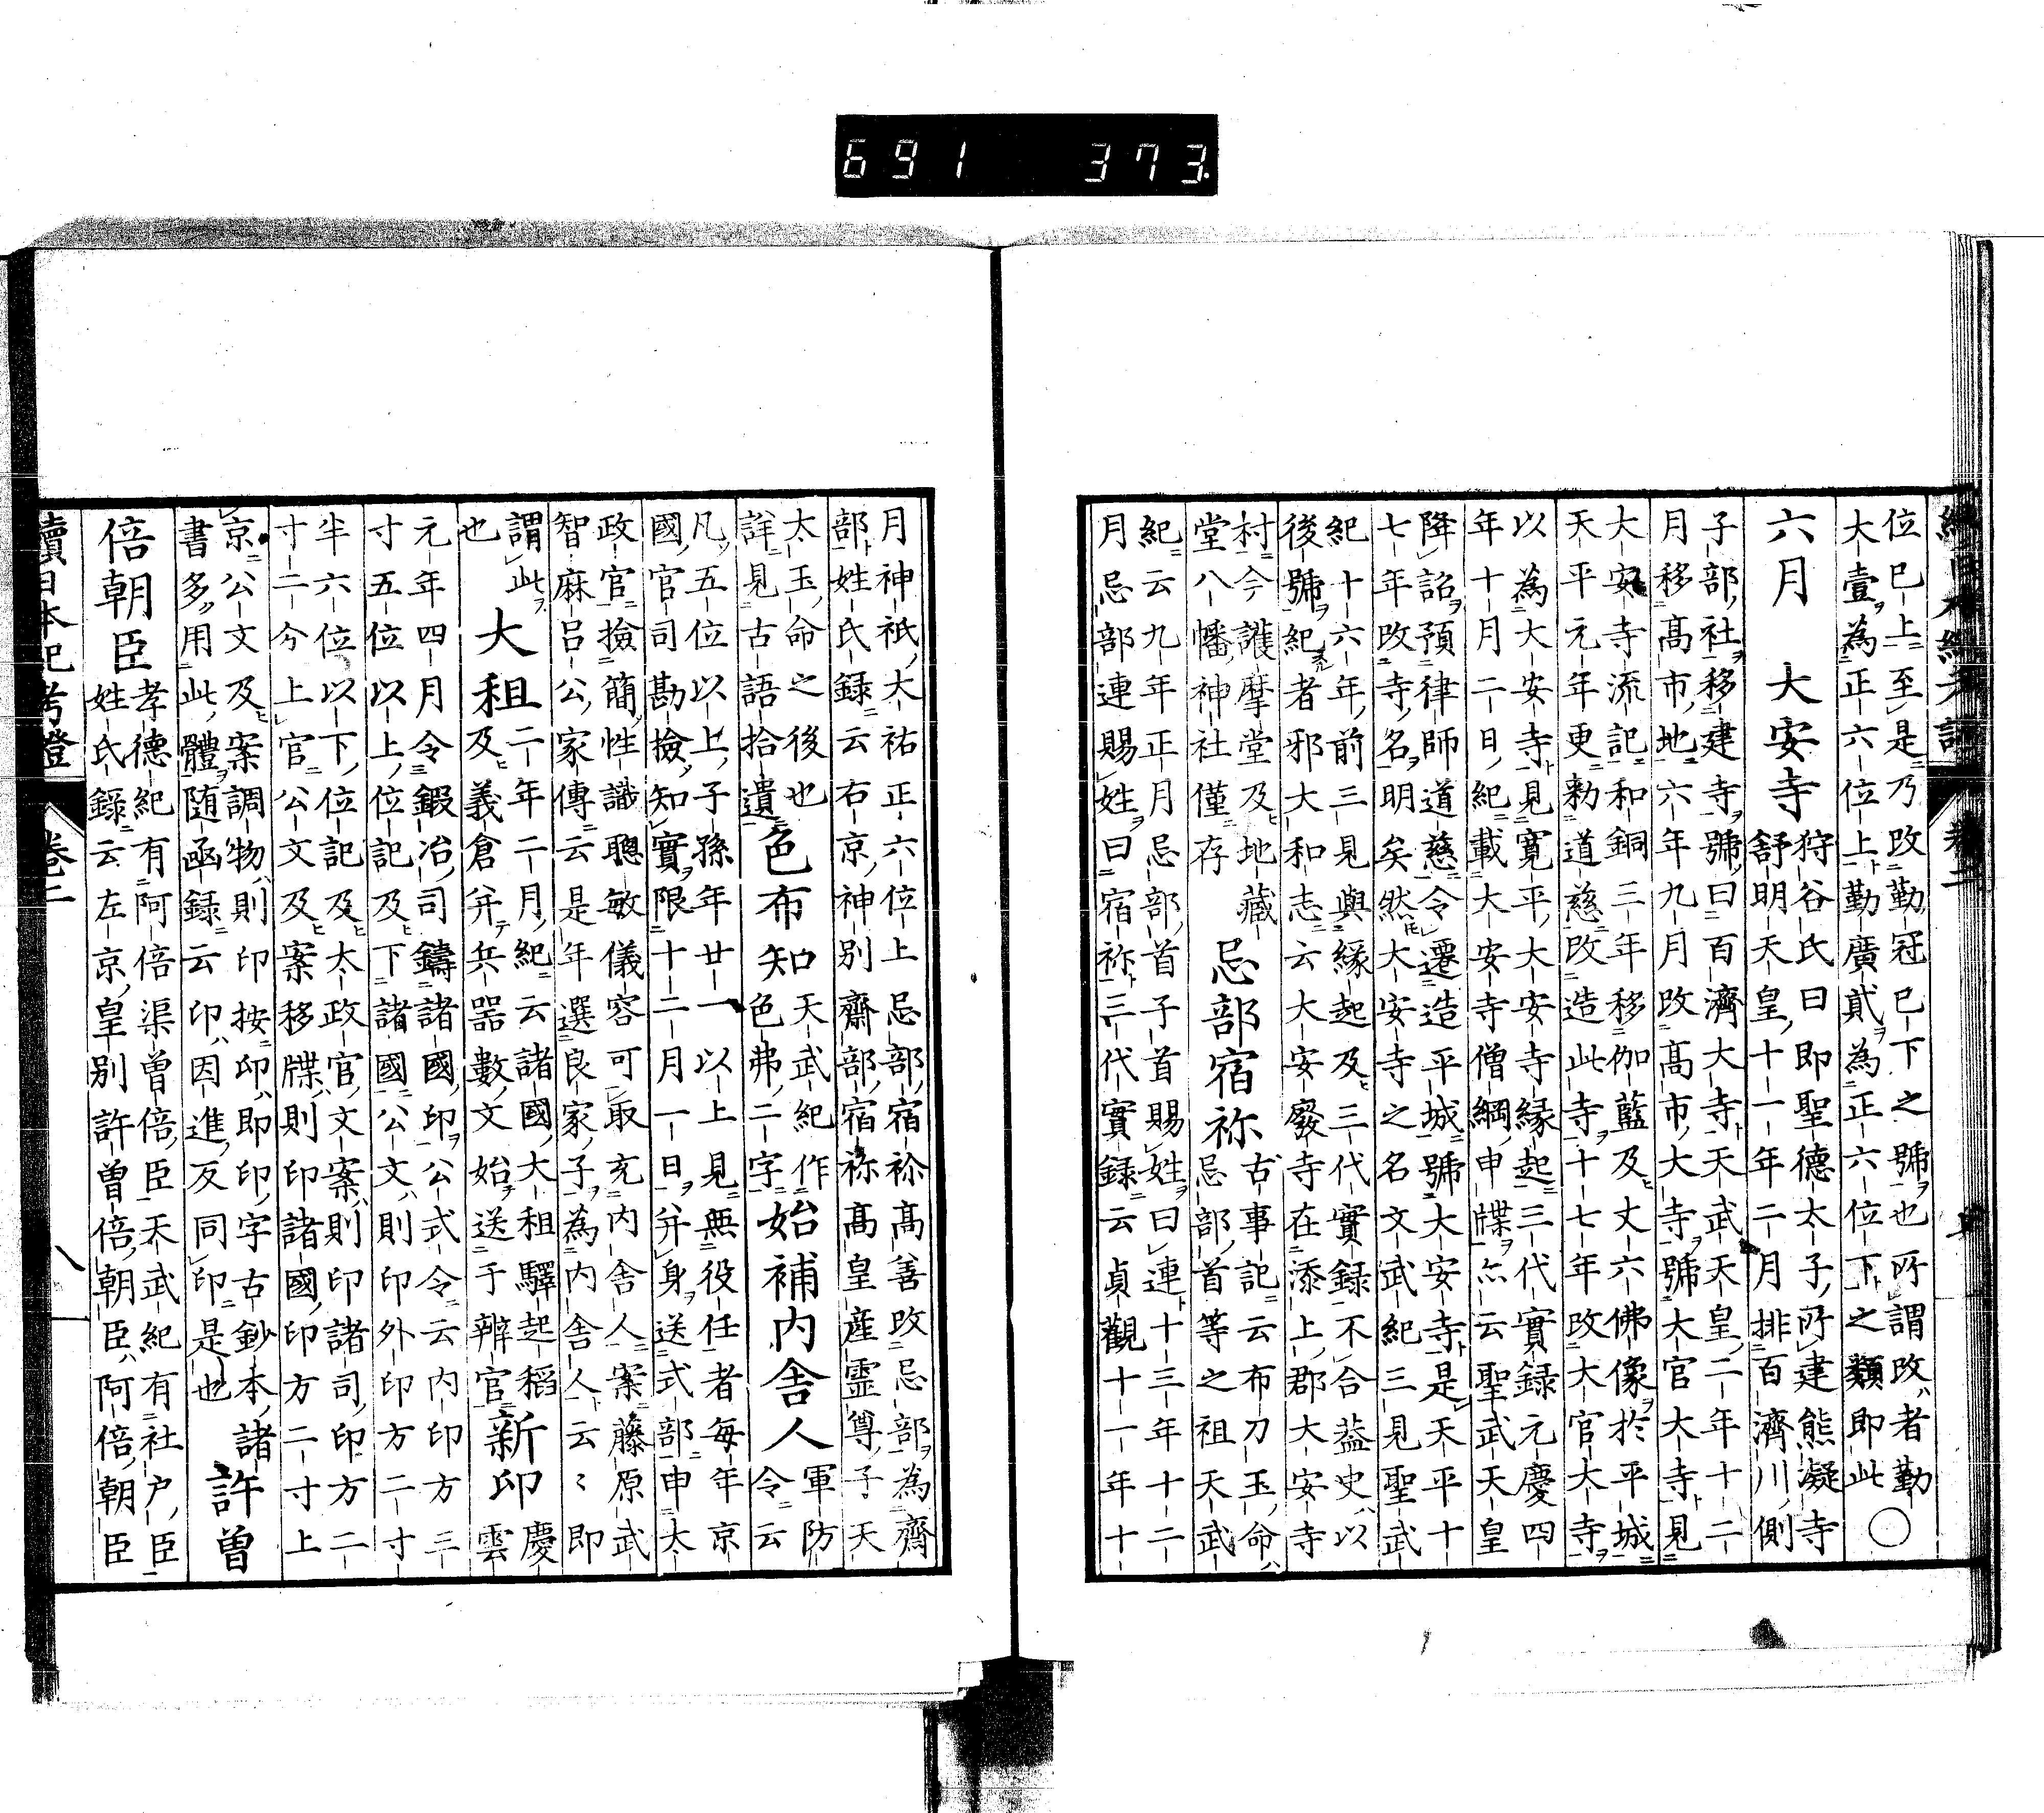 691 373.
位已上至是乃改勤冠已下之號也所謂改者勤
大壹為正六位上勤廣貳為正六位下之類即此○
六月 大安寺 狩谷氏曰即聖德太子所建熊凝寺
舒明天皇十一年二月排百濟川側
子部社移建寺號曰百濟大寺天武天皇二年十二
月移髙市地六年九月改髙市大寺號大官大寺見
大安寺流記和銅三年移伽藍及丈六佛像於平城
天平元年更勅道慈改造此寺十七年改大官大寺
以為大安寺見寛平大安寺縁起三代實録元慶四
年十月二日紀載大安寺僧綱申牒亦云聖武天皇
降詔預律師道慈令遷造平城號大安寺是天平十
七年改寺名明矣然大安寺之名文武紀三見聖武
紀十六年前三見與縁起及三代實録不合葢史以
後號紀者邪大和志云大安廢寺在添上郡大安寺
村今護摩堂及地藏
堂八幡神社僅存
忌部宿祢 古事記云布刀玉命
忌部首等之祖天武
紀云九年正月忌部首子首賜姓曰連十三年十二
月忌部連賜姓曰宿祢三代實録云貞觀十一年十
月神祇大祐正六位上忌部宿祢髙善改忌部為齋
部姓氏録云右京神別齋部宿祢髙皇産霊尊子天
太玉命之後也
詳見古語拾遺
色布知 天武紀作
色弗二字
始補内舎人 軍防
令云
凡五位以上子孫年廿一以上見無役任者毎年京
國官司勘撿知實限十二月一日并身送式部申太
政官撿簡性識聰敏儀容可取充内舎人案藤原武
智麻呂公家傳云是年選良家子為内舎人云〻即
謂此
也
大租 二年二月紀云諸國大租驛起稻
及義倉并兵器數文始送于辨官
新印 慶
雲
元年四月令鍛冶司鑄諸國印公式令云内印方三
寸五位以上位記及下諸國公文則印外印方二寸
半六位以下位記及太政官文案則印諸司印方二
寸二分上官公文及案移牒則印諸國印方二寸上
京公文及案調物則印按印即印字古鈔本諸
書多用此體随函録云印因進反同印是也
許曽
倍朝臣 孝德紀有阿倍渠曽倍臣天武紀有社戸臣
姓氏録云左京皇別許曽倍朝臣阿倍朝臣
續日本紀考證 卷二 八